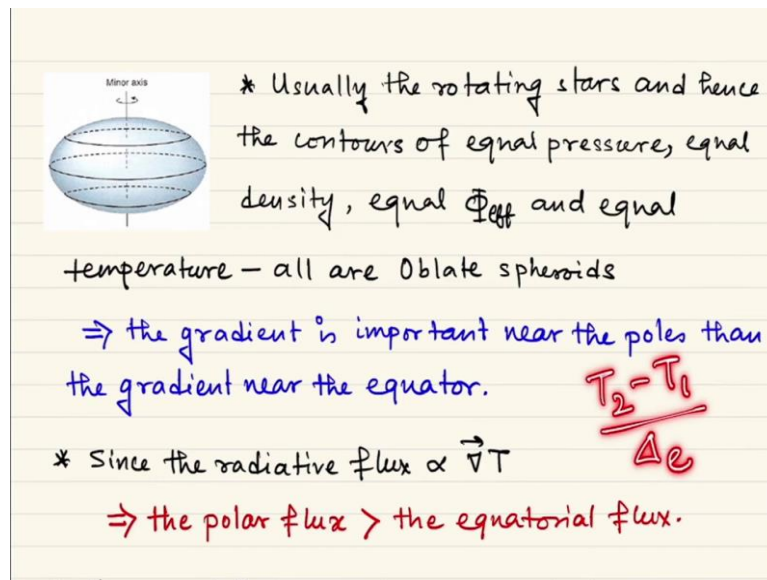 Minor axis
* Usually the rotating stars and hence
the contours of equal pressure, equal
density, equal Φeff and equal
temperature – all are Oblate spheroids
⇒ the gradient is important near the poles than
the gradient near the equator.
T2-T1
Δe
* Since the radiative flux ∝ ∇⃗T
⇒ the polar flux > the equatorial flux.